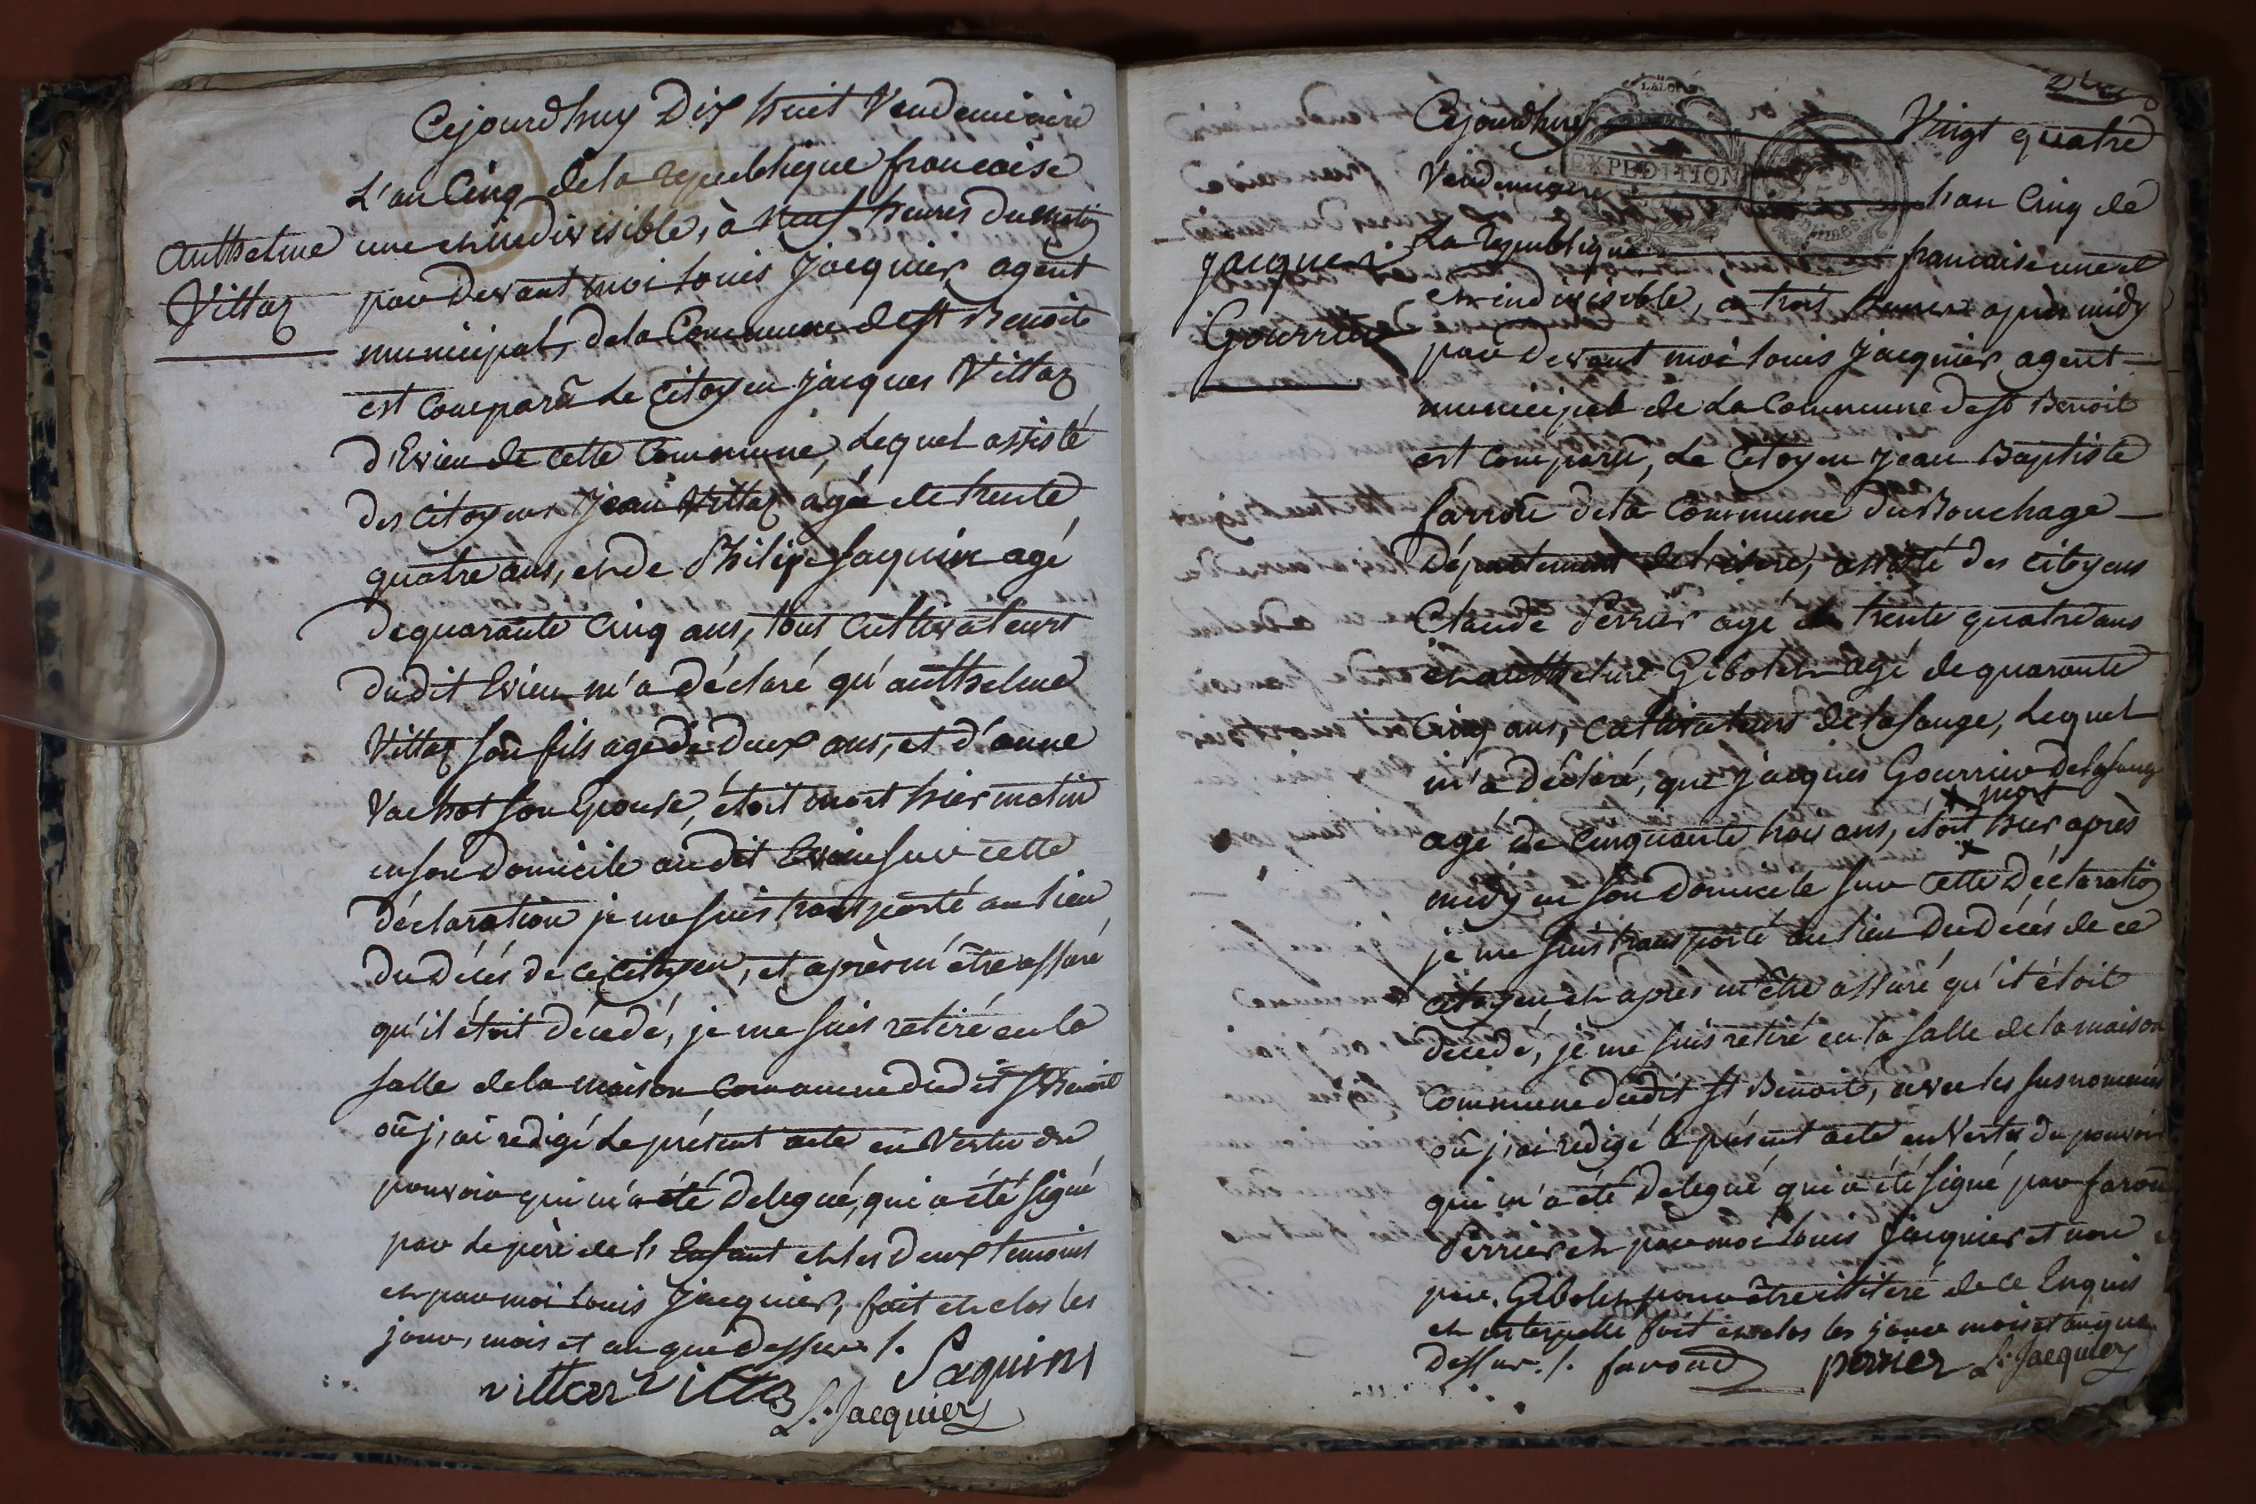 Cejourdhuy Dix huit Vendemiaire
L'an Cinq dela republique francaise
Anthelme
Vittoz
une et indivisible, à neuf heures du matin
par devant moi Louis Jacquier, agent
municipal, dela Commune de St Benoit
est comparû le Citoyen Jacques Vittoz
d'Evieu de cette Commune, lequel assisté
des citoyens Jean Vittoz agé de trente
quatre ans, et de Philipe Saquin agé
de quarante cinq ans, tous cultivateurs
dudit Evieu m'a déclaré qu'anthelme
Vittoz son fils agé de deux ans, et d'anne
Vachot son Epouse, étoit mort hier matin
en son domicile audit Evieu sur cette
déclaration je me suis transporté au lieu
du décés de ce citoyen, et après m'être assuré
qu'il étoit décedé, je me suis retiré en la
salle dela maison commune dudit St Benoit
où j'ai redigé le présent acte en vertu du
pouvoir qui m'a été delegué, qui a été signé
par le père de l'Enfant et les deux temoins
et par moi Louis Jacquier, fait et clos les
jour, mois et an que dessus /.
Saquin
vittoz vittoz
L. Jacquier
Cejourdhuy Vingt quatre
Vendemiaire l'an Cinq de
La republique francaise une et
LA LOI
EXPEDITION
jacques
Gourrier
et indivisible, a trois heures après midy
par devant moi Louis Jacquier, agent
municipal de la Commune de St Benoit
est comparû, le Citoyen Jean Baptiste
farrou dela Commune du Bouchage
Département de l'isere, assisté des citoyens
Claude Perrier agé de trente quatre ans
et anthelme Gibolet agé de quarante
cinq ans, cultivateurs de la sauge, lequel
m'a déclaré, que jacques Gourrier de la sauge
mort
agé de cinquante trois ans, étoit hier après
midy en son domicile sur cette déclaration
je me suis transporté au lieu du décés de ce
citoyen, et après m'être assuré qu'il étoit
decedé, je me suis retiré en la salle dela maison
commune dudit St Benoit, avec les susnommés
où j'ai redigé le présent acte en vertu du pouvoir
qui m'a été delegué qui a été signé par farou
Perrier et par moi Louis Jacquier et non
par Gibolet pour être illiteré de ce Enquis
et interpellé fait et clos les jour mois et an que
dessus /. farroud perrier L. Jacquier